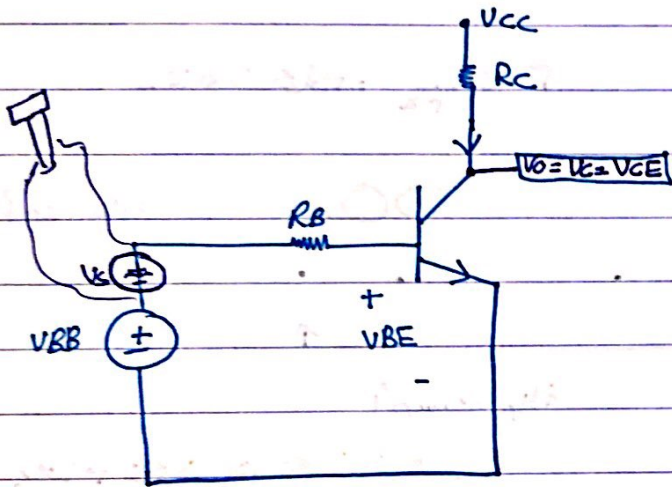 VCC
RC
VO = VC = VCE
RB
VS
+
VBB
+
-
VBE
-